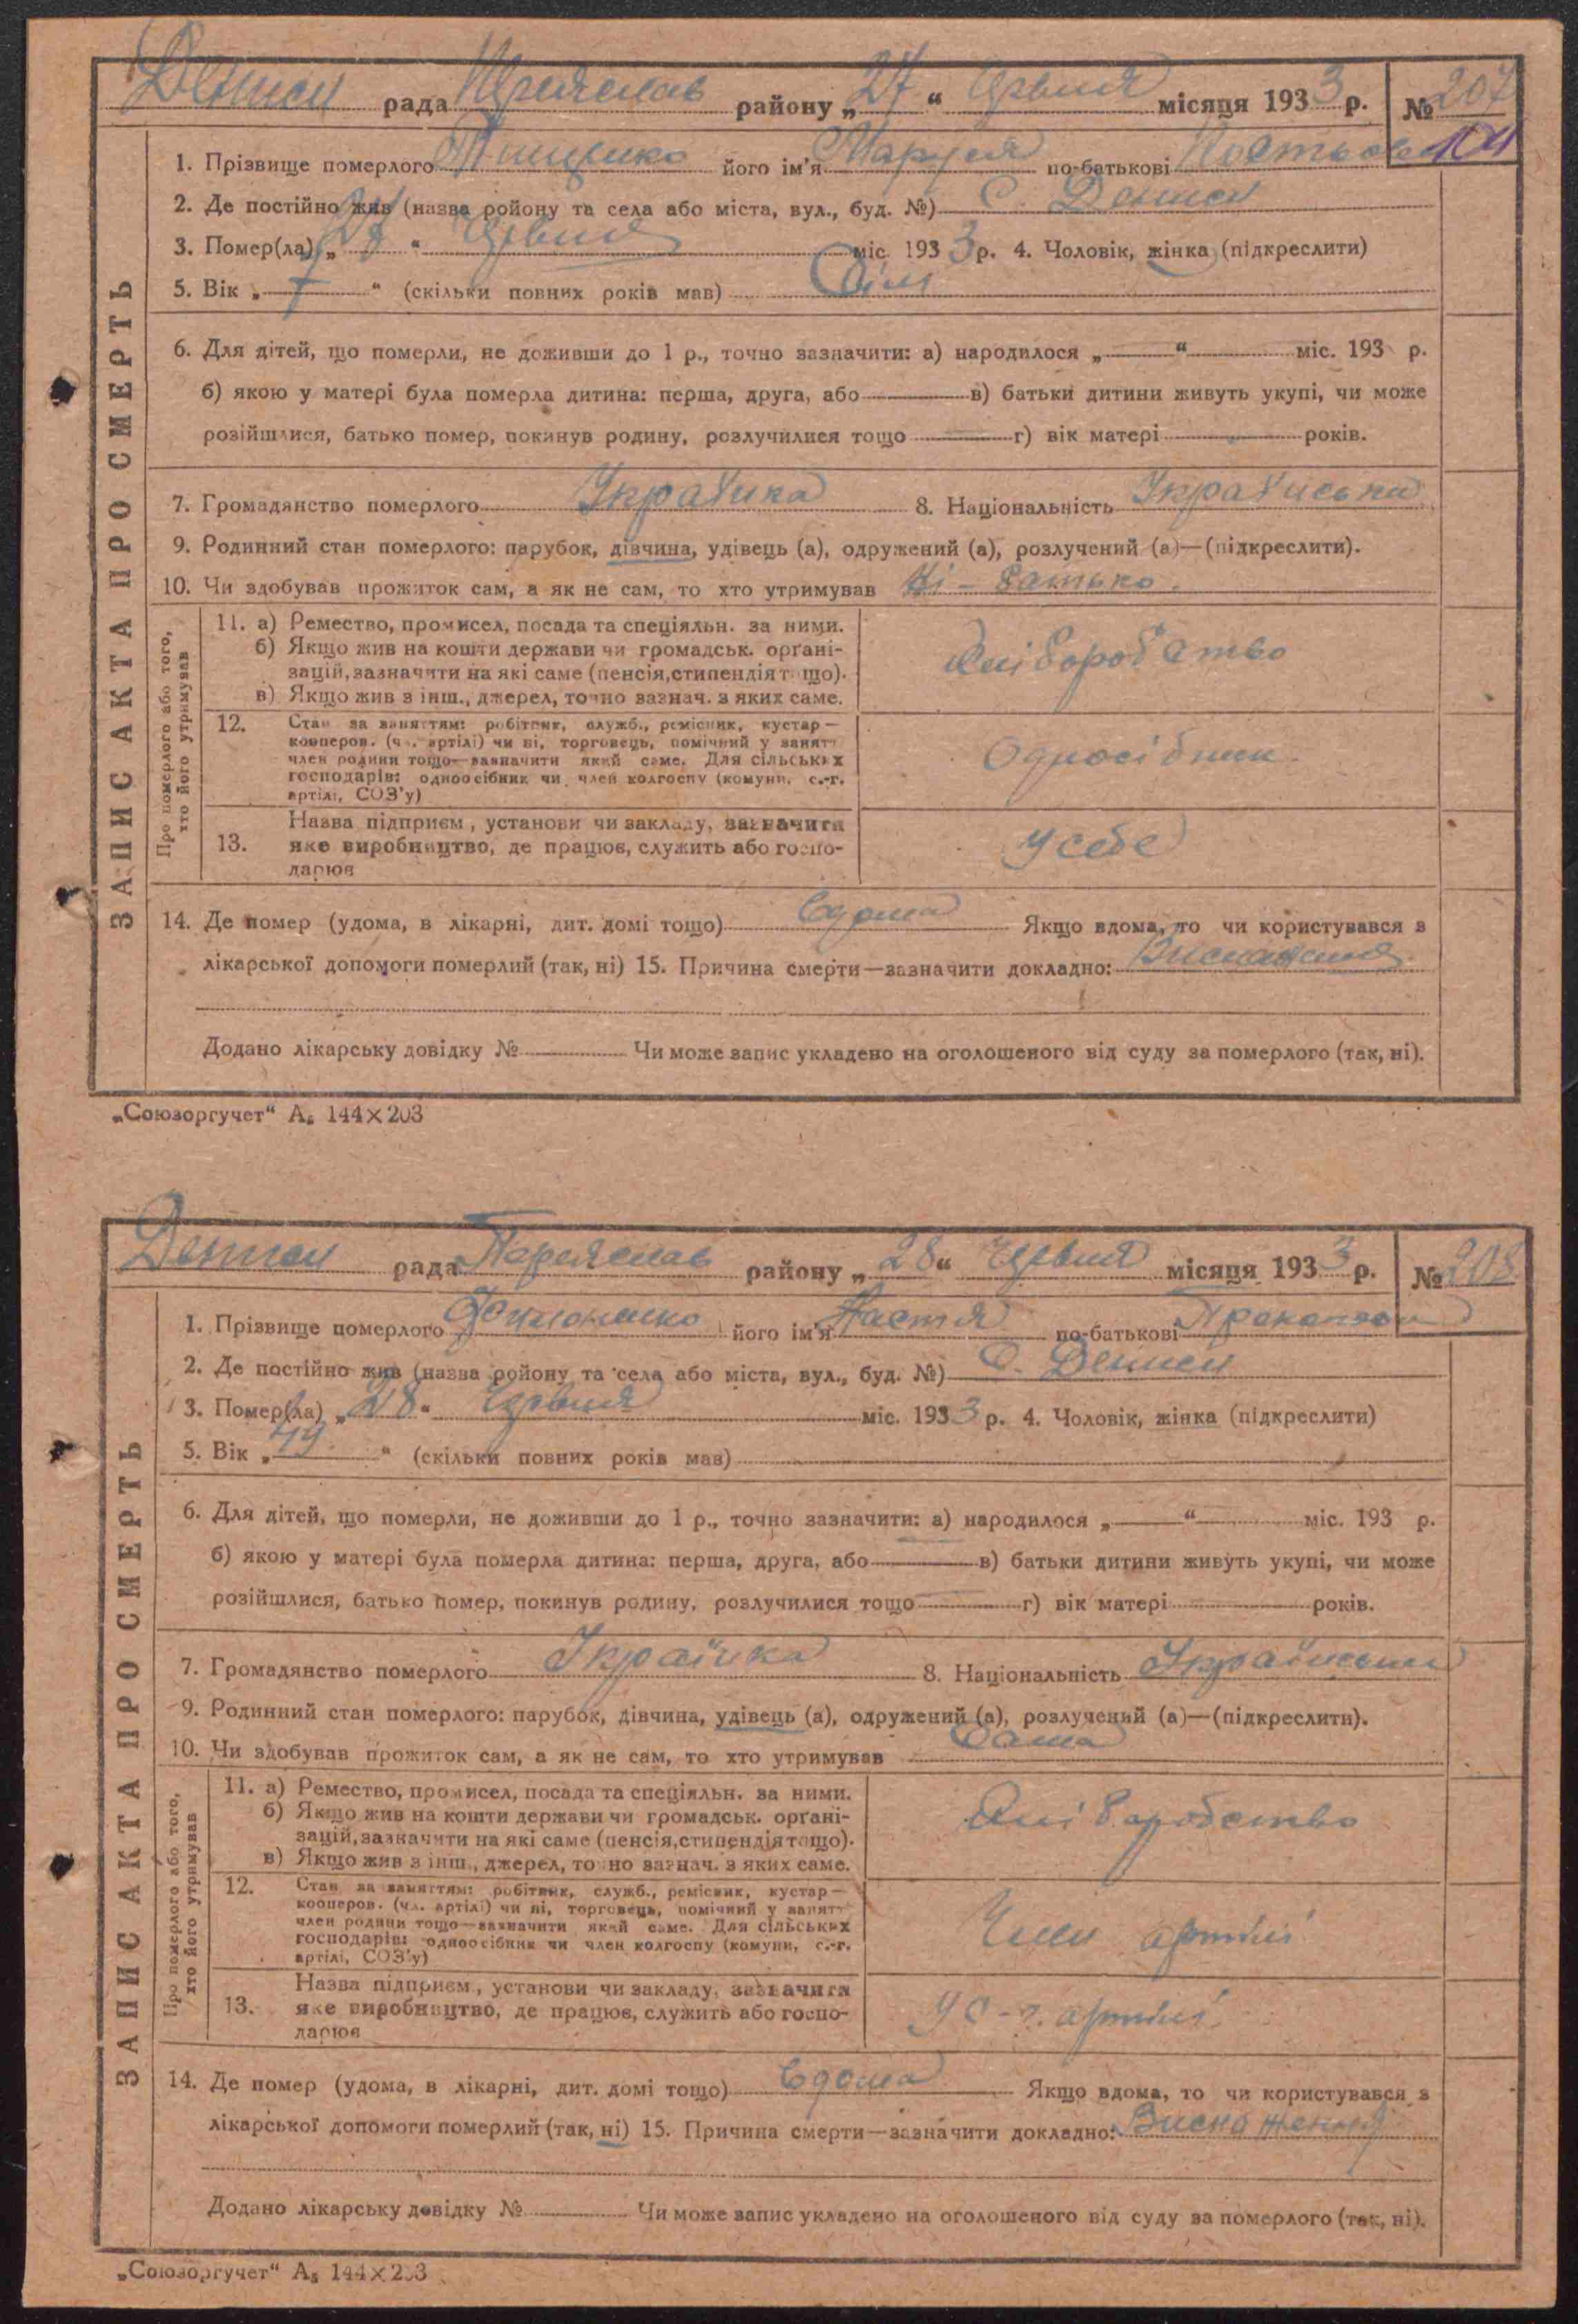 Дениси рада Переяслав району „27“ Червня місяця 1933 р. № 207
104
1. Прізвище померлого його ім'я Маруся по-батькові
2. Де постійно жив (назва ройону та села або міста, вул., буд. №) С. Дениси
3. Помер(ла) „ “ Червня міс. 1933 р. 4. Чоловік, жінка (підкреслити)
5. Вік „7“ (скільки повних років мав) Сім
6. Для дітей, що померли, не доживши до 1 р., точно зазначити: а) народилося „ “ міс. 193 р.
б) якою у матері була померла дитина: перша, друга, або в) батьки дитини живуть укупі, чи може
розійшлися, батько помер, покинув родину, розлучилися тощо г) вік матері років.
7. Громадянство померлого Українка 8. Національність Українська
9. Родинний стан померлого: парубок, дівчина, удівець (а), одружений (а), розлучений (а)—(підкреслити).
10. Чи здобував прожиток сам, а як не сам, то хто утримував Ні – батько.
11. а) Ремество, промисел, посада та спеціяльн. за ними.
б) Якщо жив на кошти держави чи громадськ. орґані-
зацій, зазначити на які саме (пенсія, стипендія тощо).
в) Якщо жив з інш., джерел, точно зазнач. з яких саме.
Хліборобство
12. Стан за заняттям: робітник, служб., ремісник, кустар—
кооперов. (чл. артілі) чи ні, торговець, помічний у занятт
член родини тощо—зазначити який саме. Для сільських
господарів: одноосібник чи член колгоспу (комуни, с.-г.
артілі, СОЗ'у)
Односібник
Назва підприєм., установи чи закладу, зазначити
13. яке виробництво, де працює, служить або госпо-
дарює
У себе
14. Де помер (удома, в лікарні, дит. домі тощо) Вдома Якщо вдома, то чи користувався з
лікарської допомоги померлий (так, ні) 15. Причина смерти—зазначити докладно: Виснаження
Додано лікарську довідку № Чи може запис укладено на оголошеного від суду за померлого (так, ні).
ЗАПИС АКТА ПРО СМЕРТЬ
Про померлого або того,
хто його утримував
„Союзоргучет“ А₅ 144×203
Дениси рада Переяслав району „28“ Червня місяця 1933 р. № 208
1. Прізвище померлого його ім'я Настя по-батькові
2. Де постійно жив (назва ройону та села або міста, вул., буд. №) С. Дениси
3. Помер(ла) „28“ Червня міс. 1933 р. 4. Чоловік, жінка (підкреслити)
5. Вік „ “ (скільки повних років мав)
6. Для дітей, що померли, не доживши до 1 р., точно зазначити: а) народилося „ “ міс. 193 р.
б) якою у матері була померла дитина: перша, друга, або в) батьки дитини живуть укупі, чи може
розійшлися, батько помер, покинув родину, розлучилися тощо г) вік матері років.
7. Громадянство померлого Українка 8. Національність Українська
9. Родинний стан померлого: парубок, дівчина, удівець (а), одружений (а), розлучений (а)—(підкреслити).
10. Чи здобував прожиток сам, а як не сам, то хто утримував Сама
11. а) Ремество, промисел, посада та спеціяльн. за ними.
б) Якщо жив на кошти держави чи громадськ. орґані-
зацій, зазначити на які саме (пенсія, стипендія тощо).
в) Якщо жив з інш., джерел, точно зазнач. з яких саме.
Хліборобство
12. Стан за заняттям: робітник, служб., ремісник, кустар—
кооперов. (чл. артілі) чи ні, торговець, помічний у занятт
член родини тощо—зазначити який саме. Для сільських
господарів: одноосібник чи член колгоспу (комуни, с.-г.
артілі, СОЗ'у)
Член артілі
Назва підприєм., установи чи закладу, зазначити
13. яке виробництво, де працює, служить або госпо-
дарює
У С-г. артілі
14. Де помер (удома, в лікарні, дит. домі тощо) Вдома Якщо вдома, то чи користувався з
лікарської допомоги померлий (так, ні) 15. Причина смерти—зазначити докладно: Виснаження
Додано лікарську довідку № Чи може запис укладено на оголошеного від суду за померлого (так, ні).
ЗАПИС АКТА ПРО СМЕРТЬ
Про померлого або того,
хто його утримував
„Союзоргучет“ А₅ 144×203